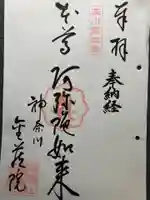 奉拝
奉納経
本尊
阿弥陀如来
神奈川
金蔵院